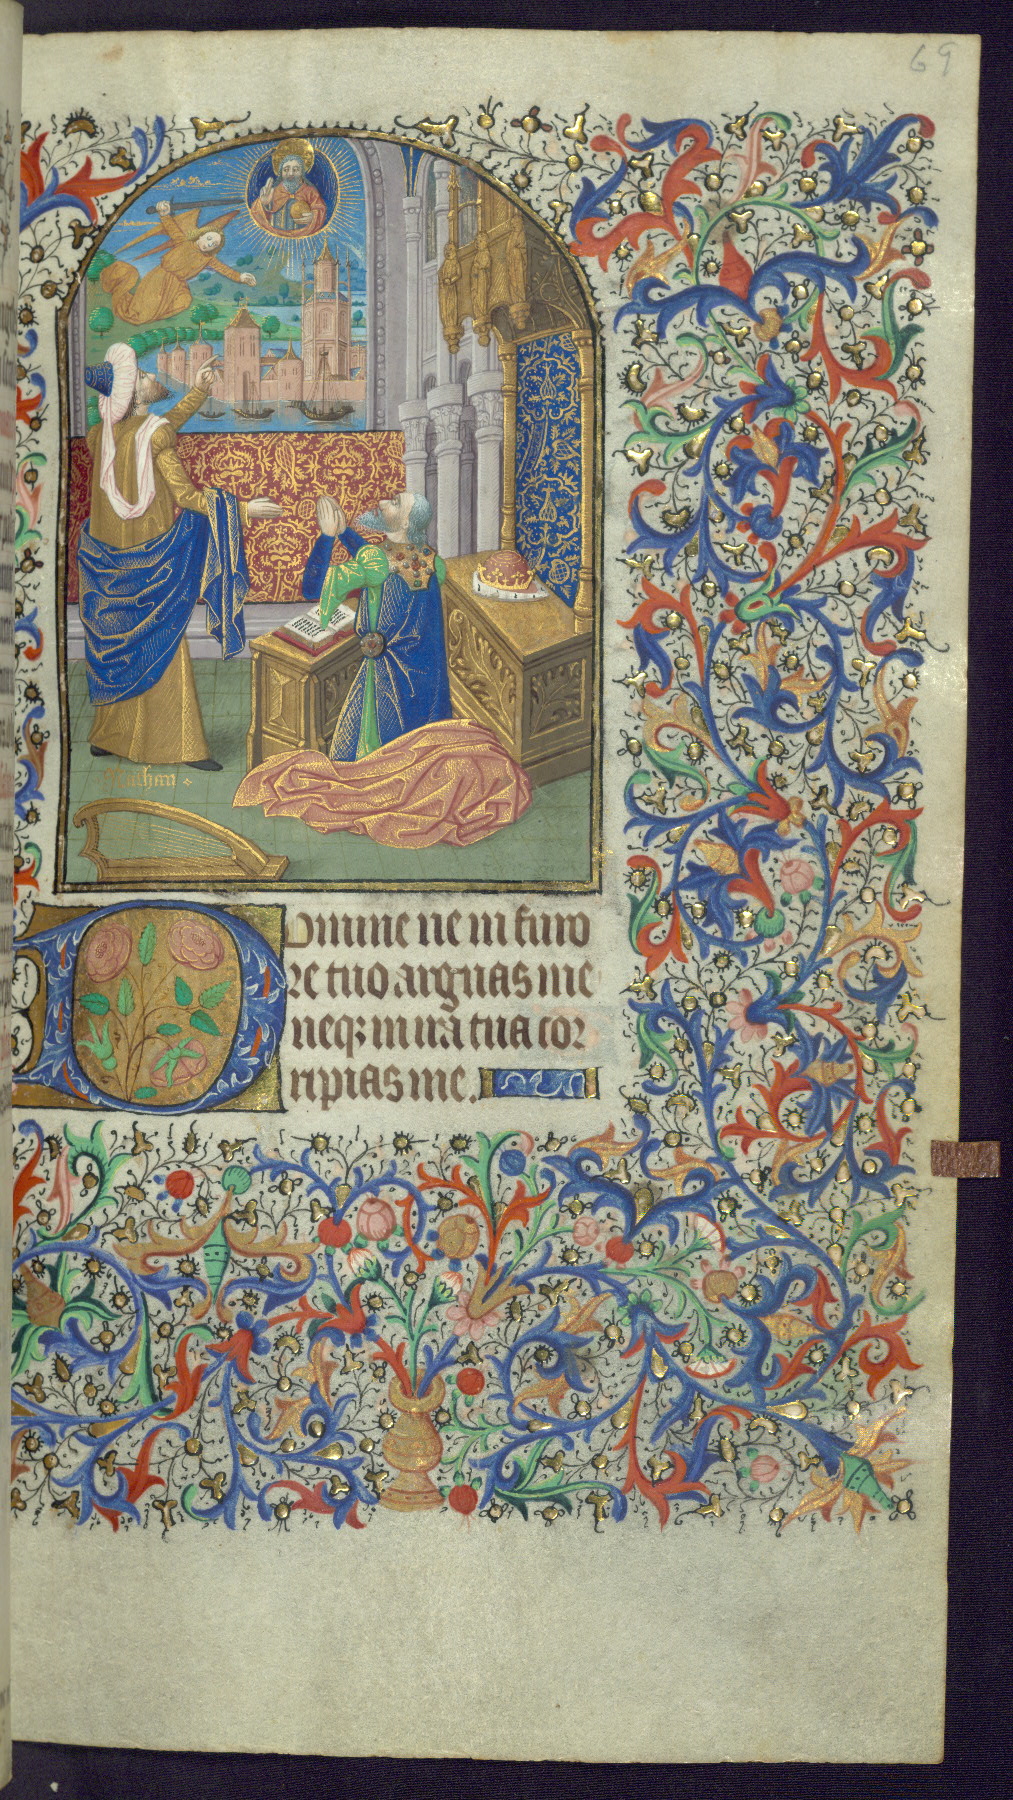 69
Nathan
Domine ne in furo
re tuo arguas me
neqȝ in irā tua cor
ripias me.